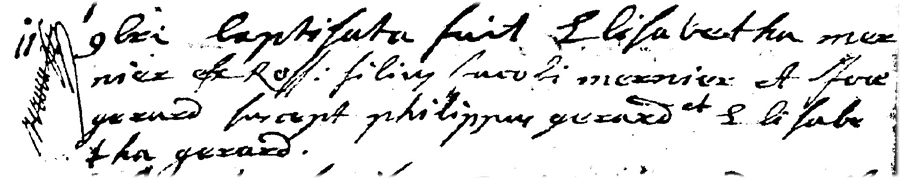 11 9bri baptisata fuit Elisabetha mer
nier ex Ross: filius Jacobi mernier et Joe
gerard suscept philippus gerard et Elisabe
tha gerard.